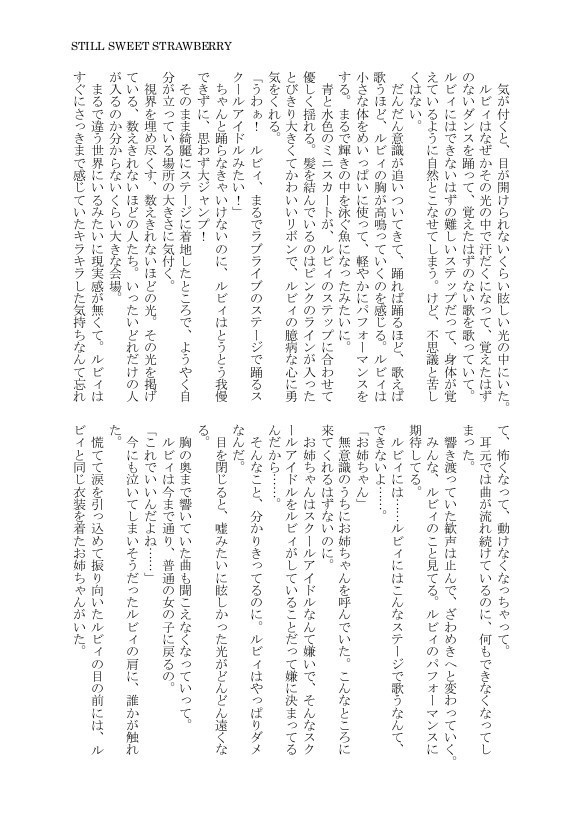 STILL SWEET STRAWBERRY
気が付くと、目が開けられないくらい眩しい光の中にいた。
ルビィはなぜかその光の中で汗だくになって、覚えたはず
のないダンスを踊って、覚えたはずのない歌を歌っていて。
ルビィにはできないはずの難しいステップだって、身体が覚
えているように自然とこなせてしまう。けど、不思議と苦し
くはない。
だんだん意識が追いついてきて、踊れば踊るほど、歌えば
歌うほど、ルビィの胸が高鳴っていくのを感じる。ルビィは
小さな体をめいっぱいに使って、軽やかにパフォーマンスを
する。まるで輝きの中を泳ぐ魚になったみたいに。
青と水色のミニスカートが、ルビィのステップに合わせて
優しく揺れる。髪を結んでいるのはピンクのラインが入った
とびきり大きくてかわいいリボンで、ルビィの臆病な心に勇
気をくれる。
「うわぁ！　ルビィ、まるでラブライブのステージで踊るス
クールアイドルみたい！」
ちゃんと踊らなきゃいけないのに、ルビィはとうとう我慢
できずに、思わず大ジャンプ！
そのまま綺麗にステージに着地したところで、ようやく自
分が立っている場所の大きさに気付く。
視界を埋め尽くす、数えきれないほどの光。その光を掲げ
ている、数えきれないほどの人たち。いったいどれだけの人
が入るのか分からないくらい大きな会場。
まるで違う世界にいるみたいに現実感が無くて。ルビィは
すぐにさっきまで感じていたキラキラした気持ちなんて忘れ
て、怖くなって、動けなくなっちゃって。
耳元では曲が流れ続けているのに、何もできなくなってし
まった。
響き渡っていた歓声は止んで、ざわめきへと変わっていく。
みんな、ルビィのこと見てる。ルビィのパフォーマンスに
期待してる。
ルビィには……ルビィにはこんなステージで歌うなんて、
できないよ……。
「お姉ちゃん」
無意識のうちにお姉ちゃんを呼んでいた。こんなところに
来てくれるはずないのに。
お姉ちゃんはスクールアイドルなんて嫌いで、そんなスク
ールアイドルをルビィがしていることだって嫌に決まってる
んだから……。
そんなこと、分かりきってるのに。ルビィはやっぱりダメ
なんだ。
目を閉じると、嘘みたいに眩しかった光がどんどん遠くな
る。
胸の奥まで響いていた曲も聞こえなくなっていって。
ルビィは今まで通り、普通の女の子に戻るの。
「これでいいんだよね……」
今にも泣いてしまいそうだったルビィの肩に、誰かが触れ
た。
慌てて涙を引っ込めて振り向いたルビィの目の前には、ル
ビィと同じ衣装を着たお姉ちゃんがいた。